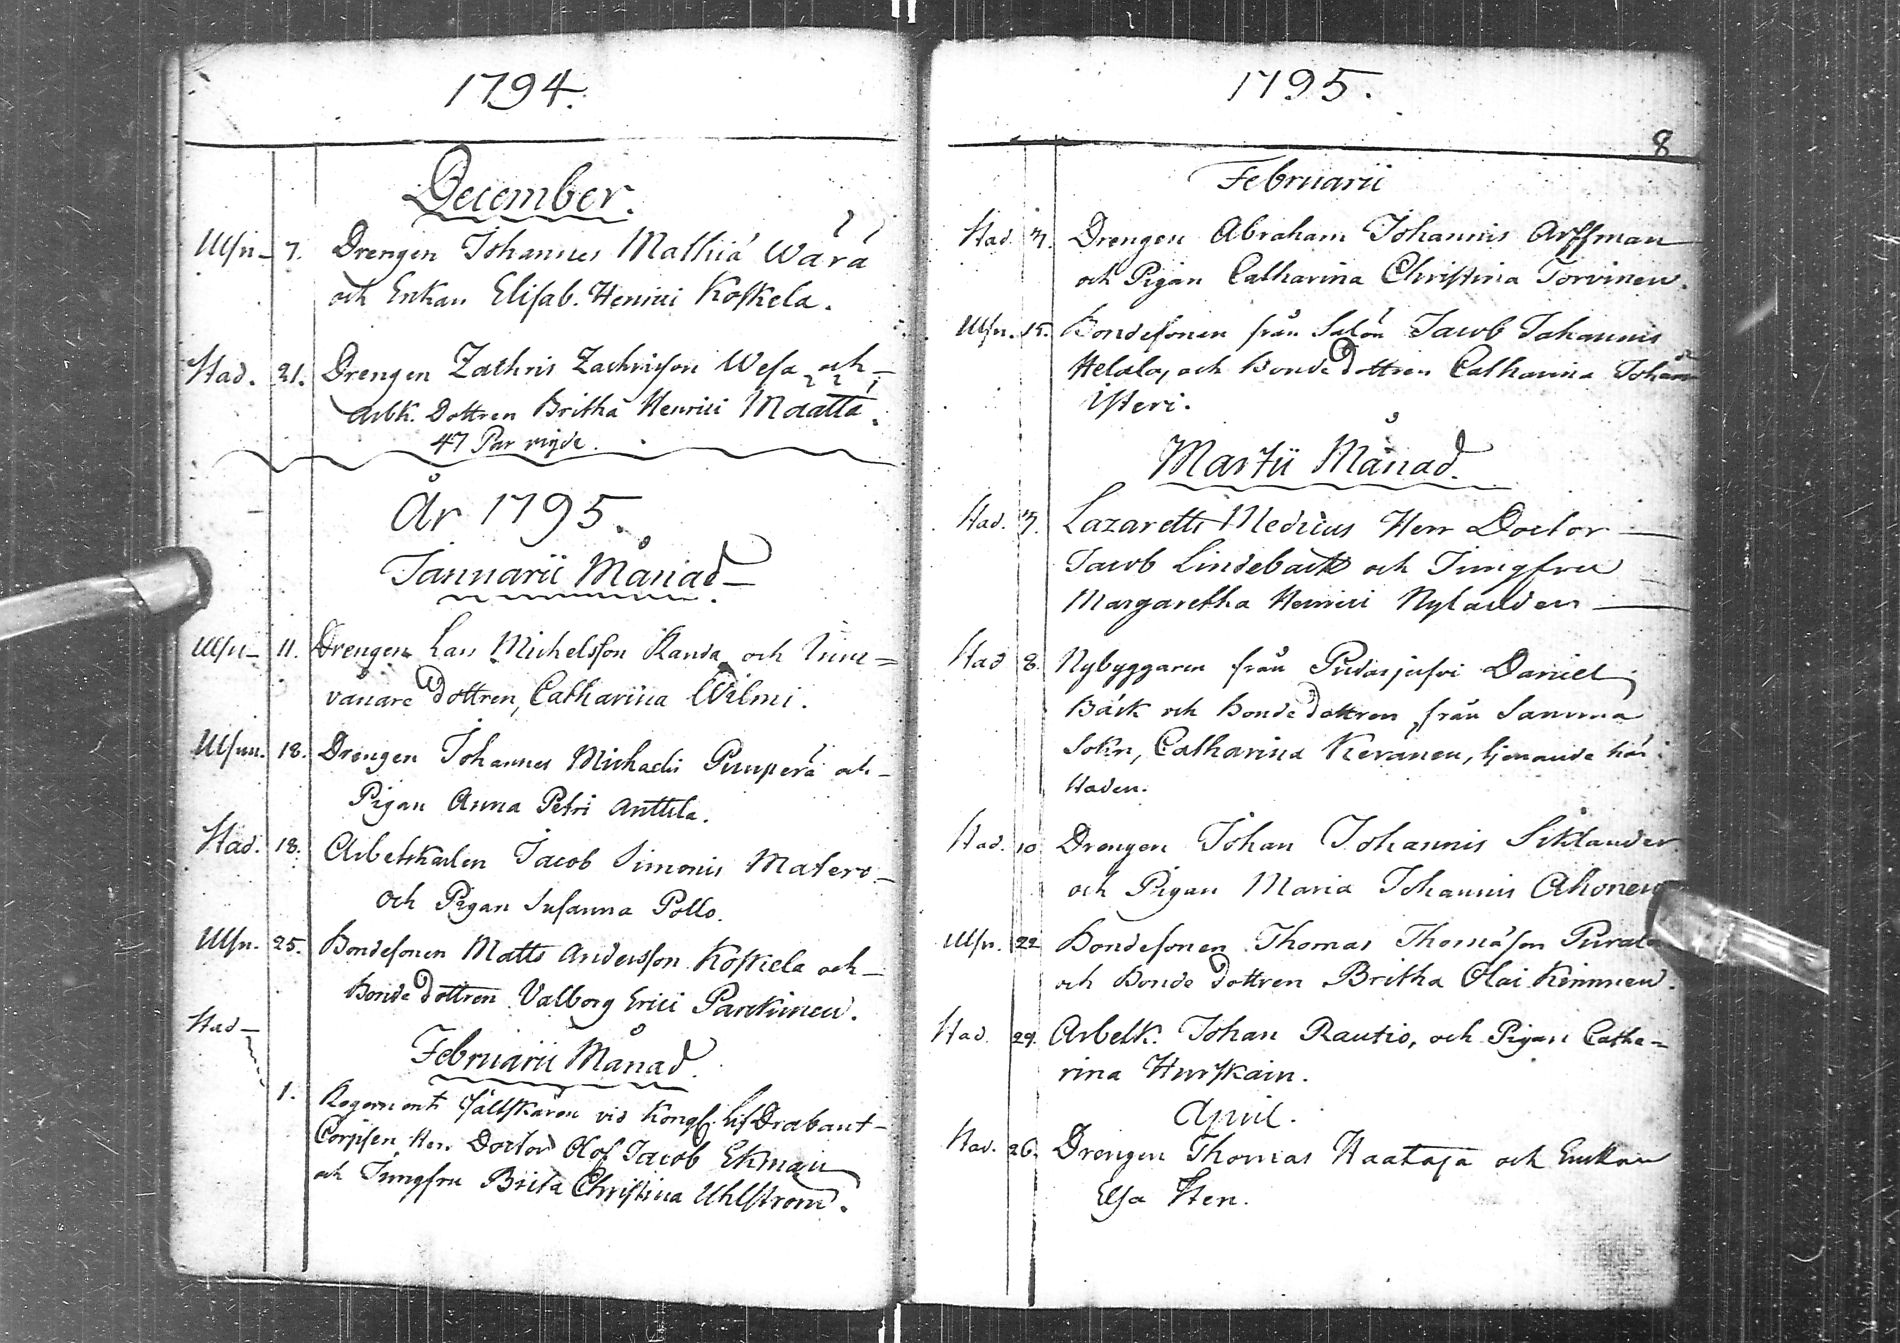 1794.
December.
Ulsn- 7. Drengen Johannes Mathiæ Wära
och Enkan Elisab. Henrici Koskela.
Stad. 21. Drengen Zachris Zachrisson Wesa och
Arbk. Dottren Britha Henrici Määttä.
47 Par vigde.
År 1795.
Januarii Månad
Ulsn- 11. Drengen Lars Michelsson Kanda och Inne=
vånare dottren, Catharina Wilmi.
Ulsnn. 18. Drengen Johannes Michaelis Puuperä och
Pigan Anna Petri Anttila.
Stad. 18. Arbetskarlen Jacob Simonis Matero
och Pigan Susanna Pollo.
Ulsn. 25. Bondesonen Matts Andersson Koskela och
Bonde dottren Valborg Erici Parckinen.
Stad
Februarii Månad.
1. Regements fältskären vid Kongl. Lif Drabant
Corpsen Herr Doctor Olof Jacob Ekman
och Jungfru Brita Christina Uhlström.
1795.
8
Februarii
Stad. 3. Drengen Abraham Johannis Arffman
och Pigan Catharina Christina Torvinen.
Ulsn. 15. Bondesonen från Salön Jacob Johannis
Helala, och Bonde dottren Catharina Johan
isteri.
Martii Månad.
Stad. 3. Lazaretts Medicus Herr Doctor
Jacob Lindebäck och Jungfru
Margaretha Henrici Nylander
Stad 8. Nybyggaren från Pudasjerfvi Daniel
Bäck och Bonde dottren från Samma
Sokn, Catharina Keränen, tjenande här i
Staden.
Stad. 10. Drengen Johan Johannis Siklander
och Pigan Maria Johannis Ahonen
Ulsn. 22 Bondesonen Thomas Thomæson Purala
och Bonde dottren Britha Olai Kinnunen.
Stad. 29. Arbetk. Johan Rautio, och Pigan Catha=
rina Hurskain.
April.
Stad. 26. Drengen Thomas Haataja och Enkan
Elsa Sten.